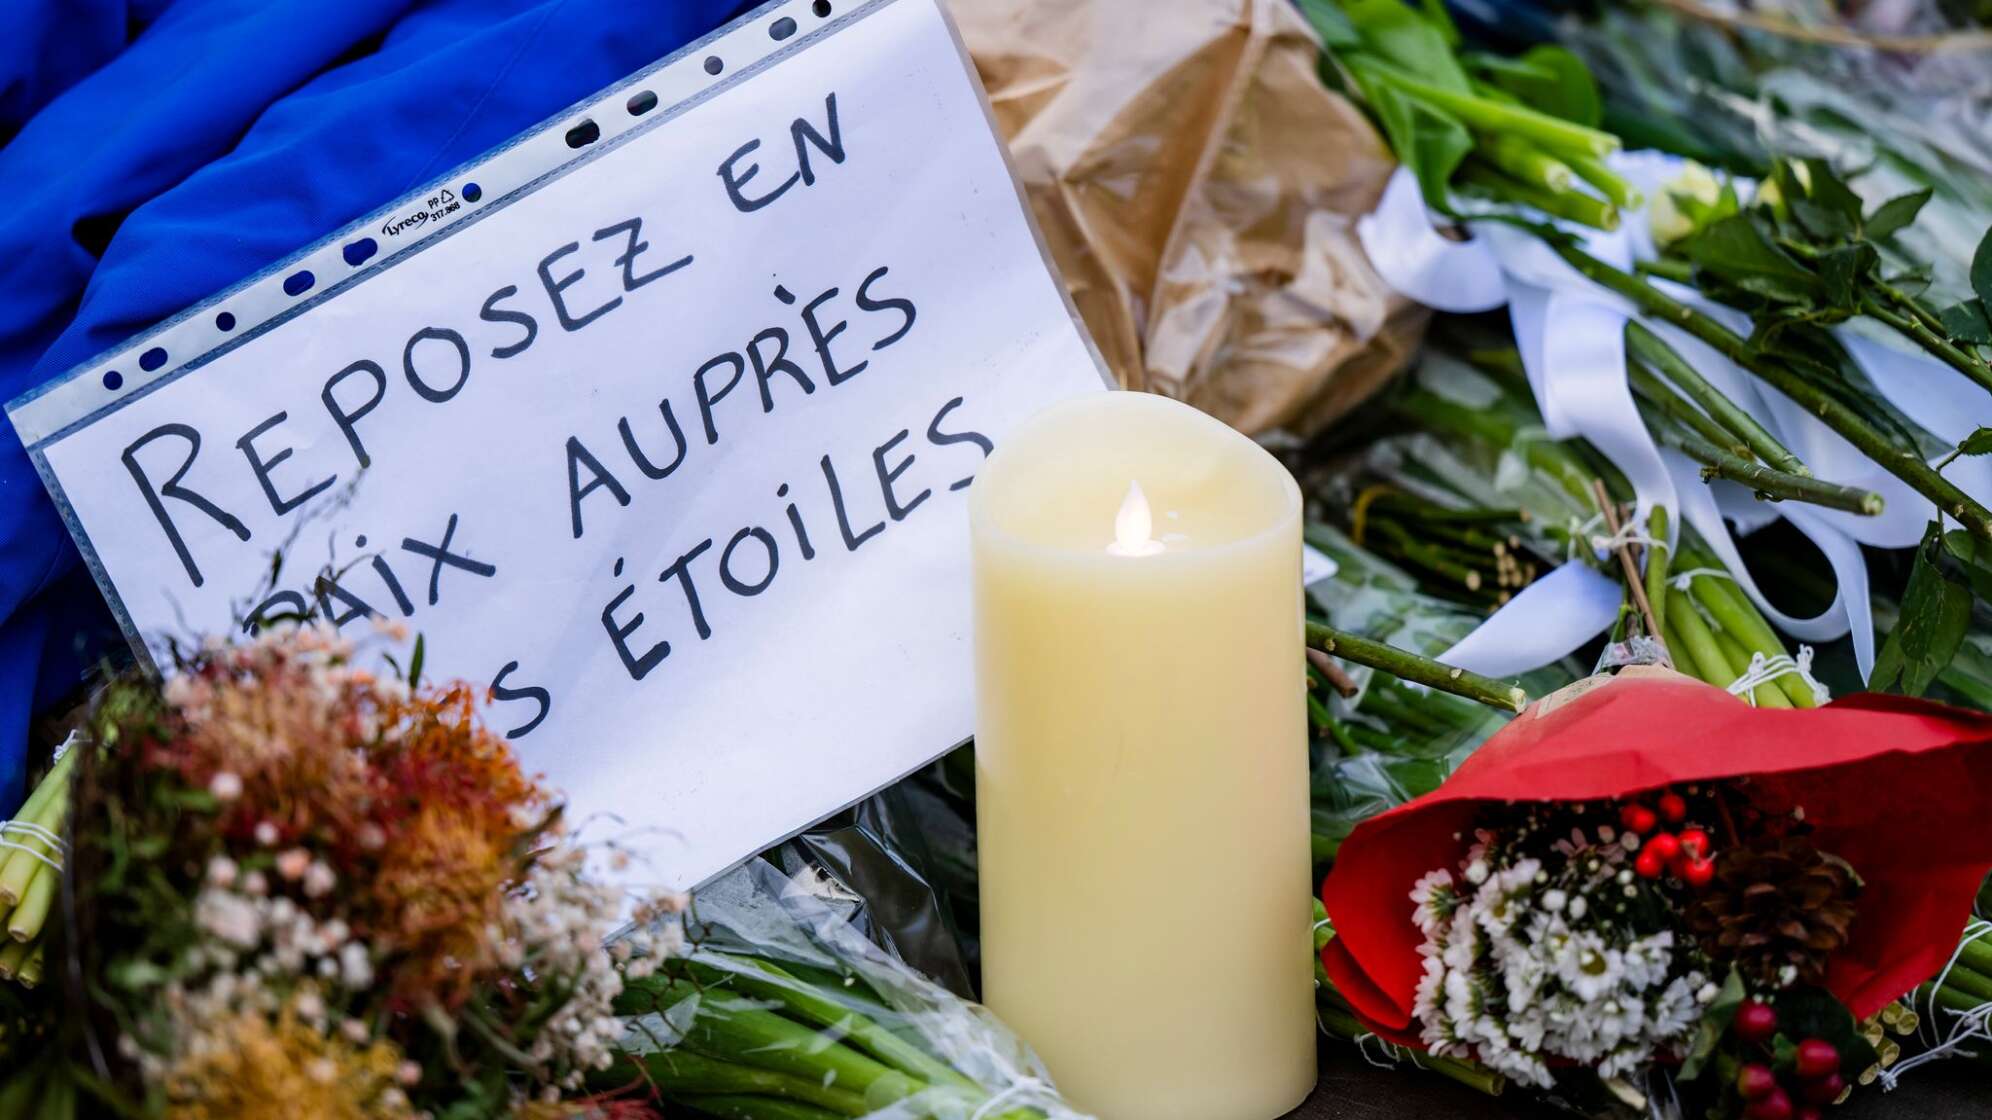 PP
Lyreco 317.868
REPOSEZ EN
PAIX AUPRÈS
ÉTOILES